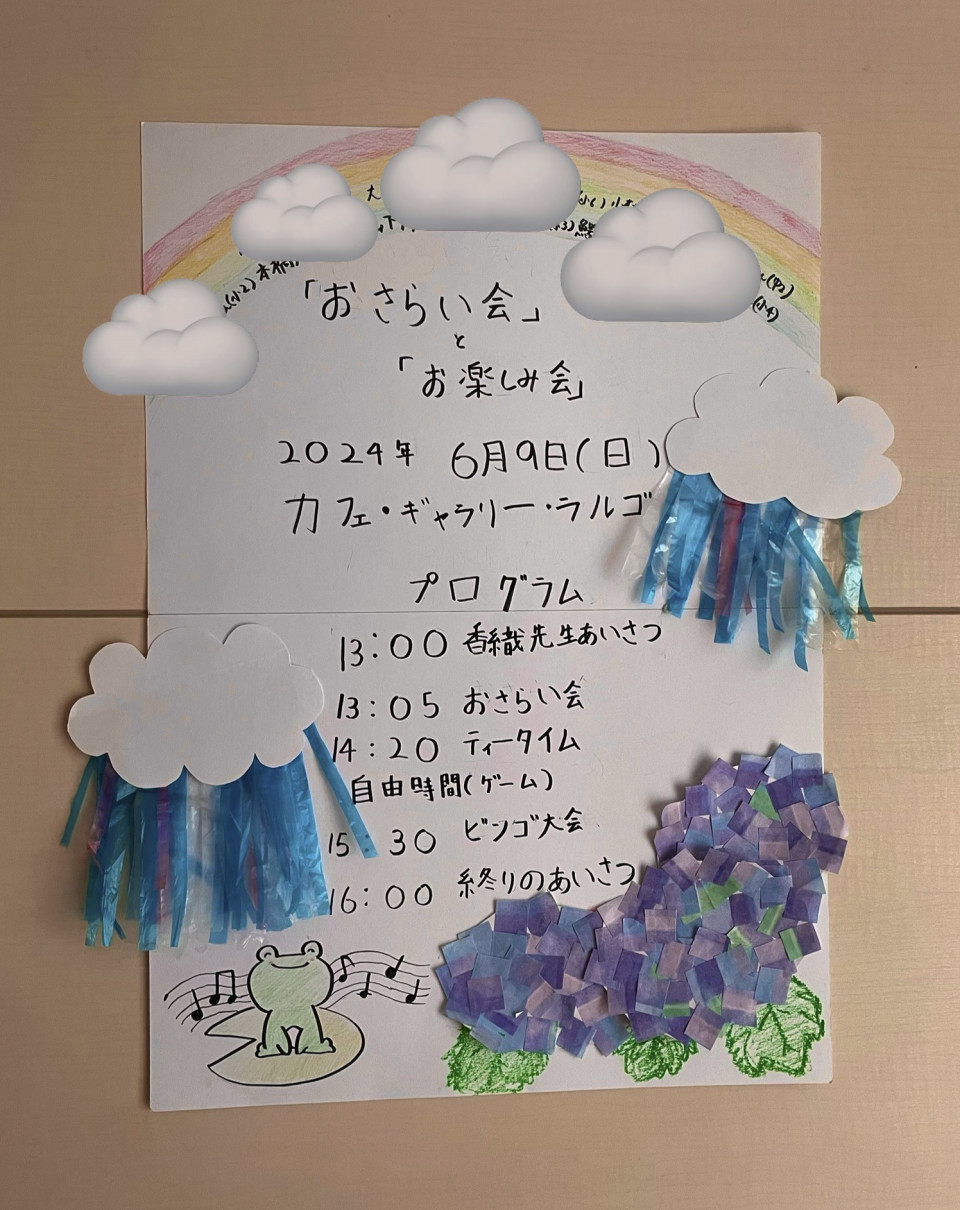 「おさらい会」
と
「お楽しみ会」
2024年 6月9日(日)
カフェ・ギャラリー・ラルゴ
プログラム
13:00 香織先生あいさつ
13:05 おさらい会
14:20 ティータイム
自由時間(ゲーム)
15 30 ビンゴ大会
16:00 終りのあいさつ